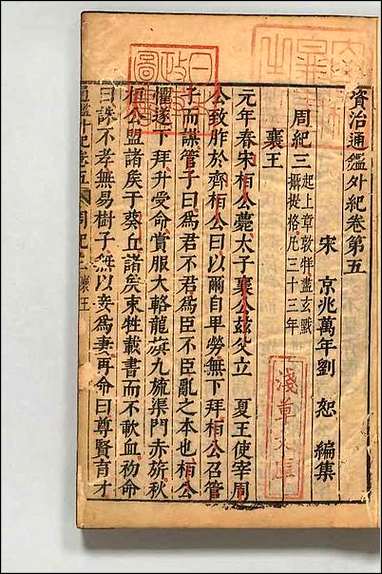 資治通鑑外紀卷第五
宋 京兆萬年劉 恕 編集
周紀三
起上章敦牂盡玄黓
攝提格凡三十三年
襄王
元年春宋桓公薨太子襄公茲父立 夏王使宰周
公致胙於齊桓公曰以爾自卑勞無下拜桓公召管
子而謀管子曰爲君不君爲臣不臣亂之本也桓公
懼遂下拜升受命賞服大輅龍旗九旒渠門赤旂秋
桓公盟諸矦于葵丘諸矦束牲載書而不歃血初命
曰誅不孝無易樹子無以妾爲妻再命曰尊賢育才
通鑑外紀卷五 周紀三 襄王
淺草文庫
日本政府圖書